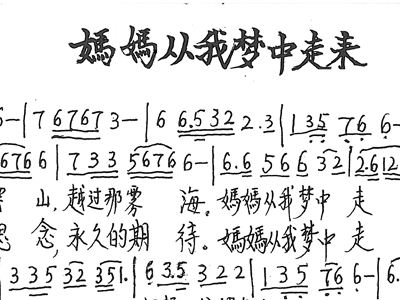 媽媽从我梦中走来
6- | 7 6767 3- | 6 6.532 2.3 | 135 76 6-
6766 | 733 5676 6- | 6.6 566 32 | 2.612
山,越过那雾 海。媽媽从我梦中 走
念,永久的期 待。媽媽从我梦中 走
| 335 32 351. | 6 3.5 322 | 135 76 6- |